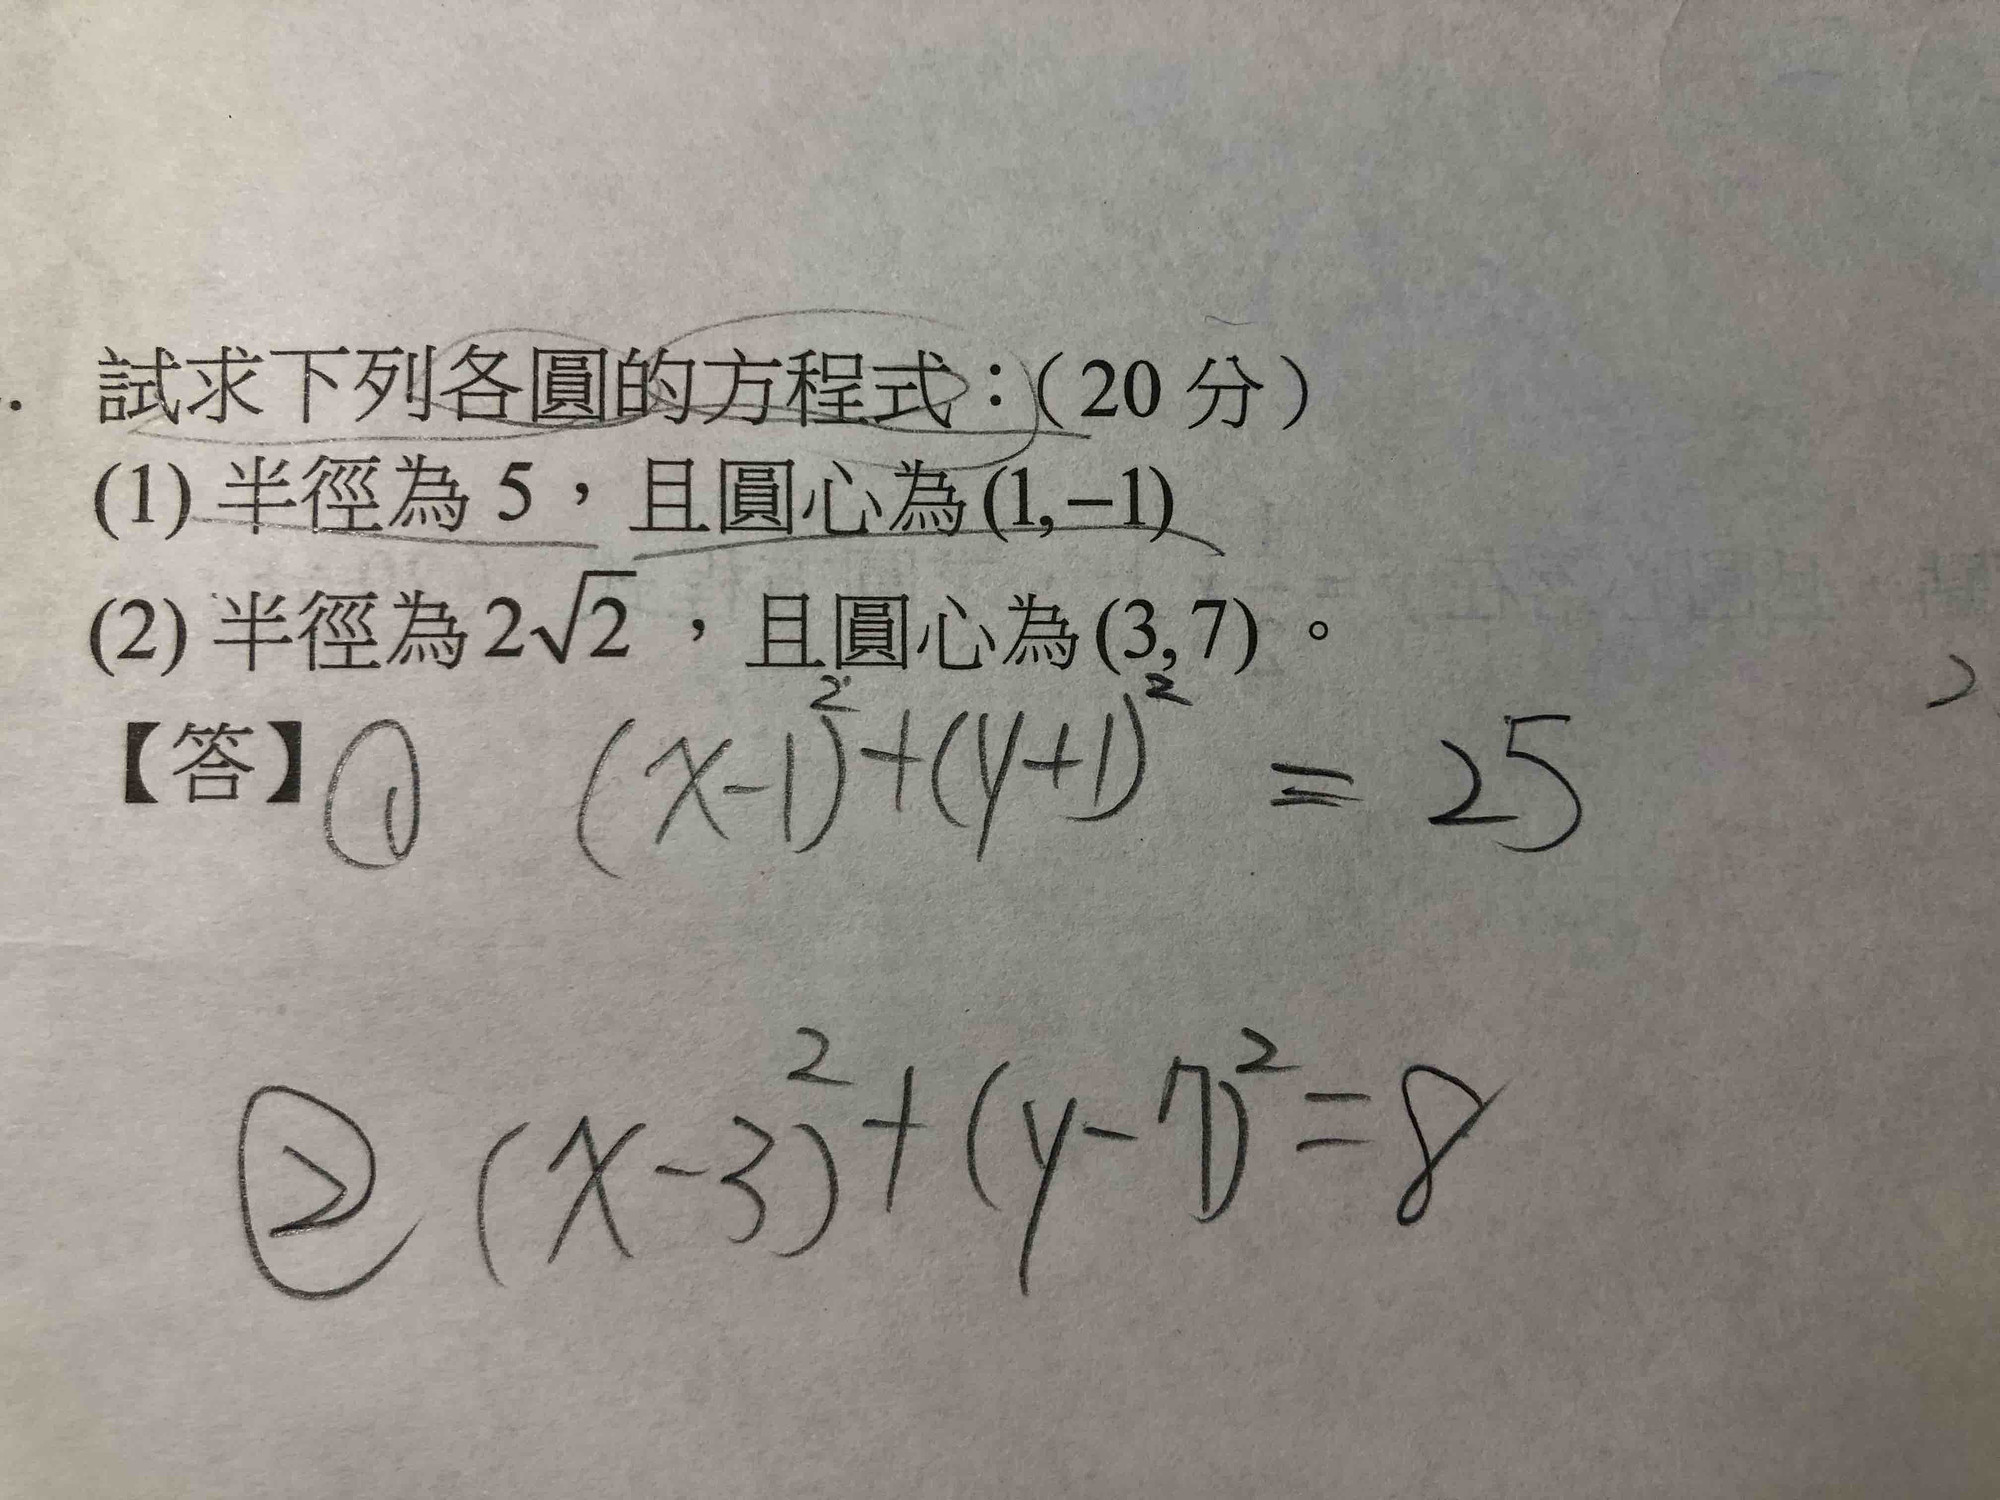 試求下列各圓的方程式：（20 分）
(1) 半徑為 5，且圓心為(1,−1)
(2) 半徑為2√2，且圓心為(3,7)。
【答】① (x-1)²+(y+1)² = 25
② (x-3)²+(y-7)²=8